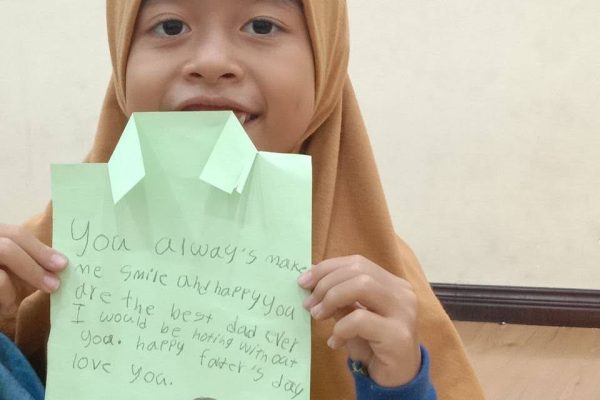 You alway's make
me smile and happy you
are the best dad ever
I would be noting without
you. happy fater's day
love you.